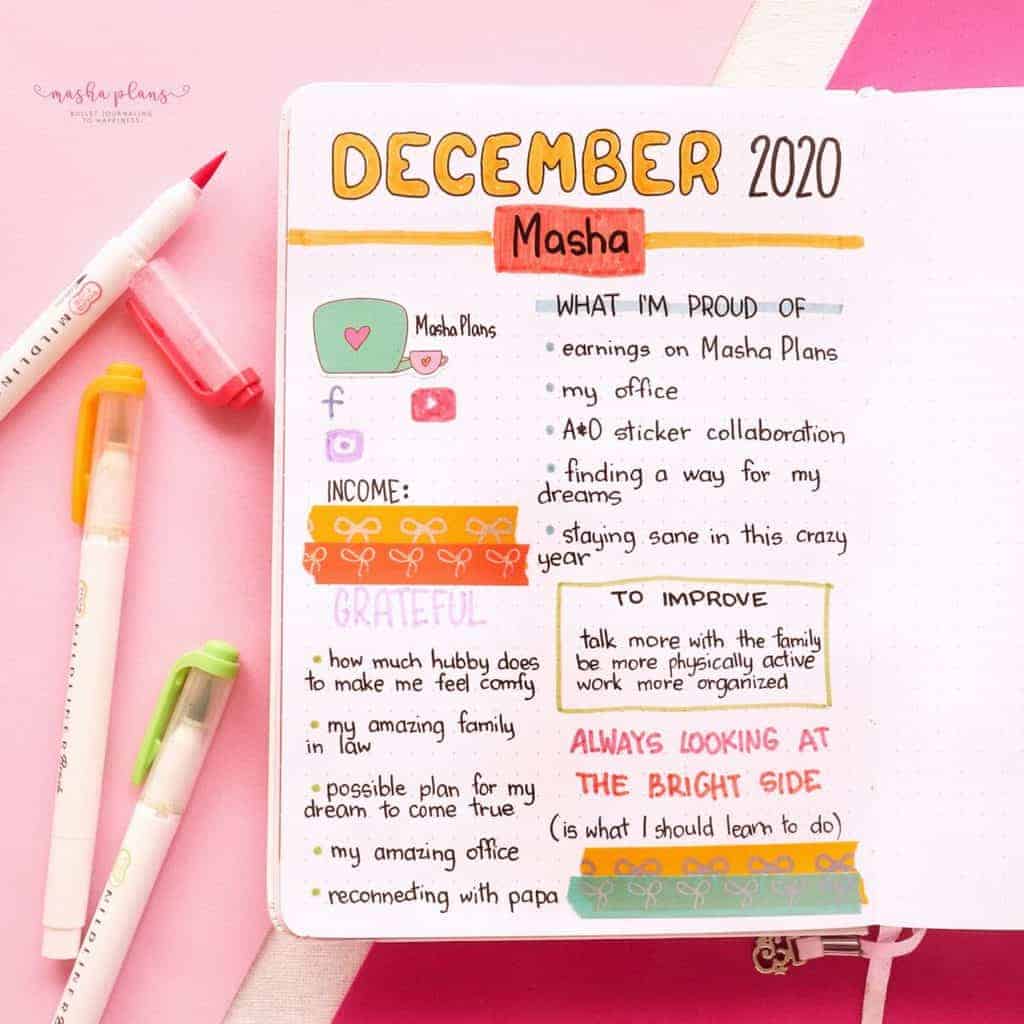 masha plans
BULLET JOURNALING
TO HAPPINESS
DECEMBER 2020
Masha
Masha Plans
f
INCOME:
GRATEFUL
• how much hubby does
to make me feel comfy
• my amazing family
in law
• possible plan for my
dream to come true
• my amazing office
• reconnecting with papa
WHAT I'M PROUD OF
• earnings on Masha Plans
• my office
• A&O sticker collaboration
• finding a way for my
dreams
• staying sane in this crazy
year
TO IMPROVE
talk more with the family
be more physically active
work more organized
ALWAYS LOOKING AT
THE BRIGHT SIDE
(is what I should learn to do)
MILDLINER
MILDLINER Brush
MILDLINER